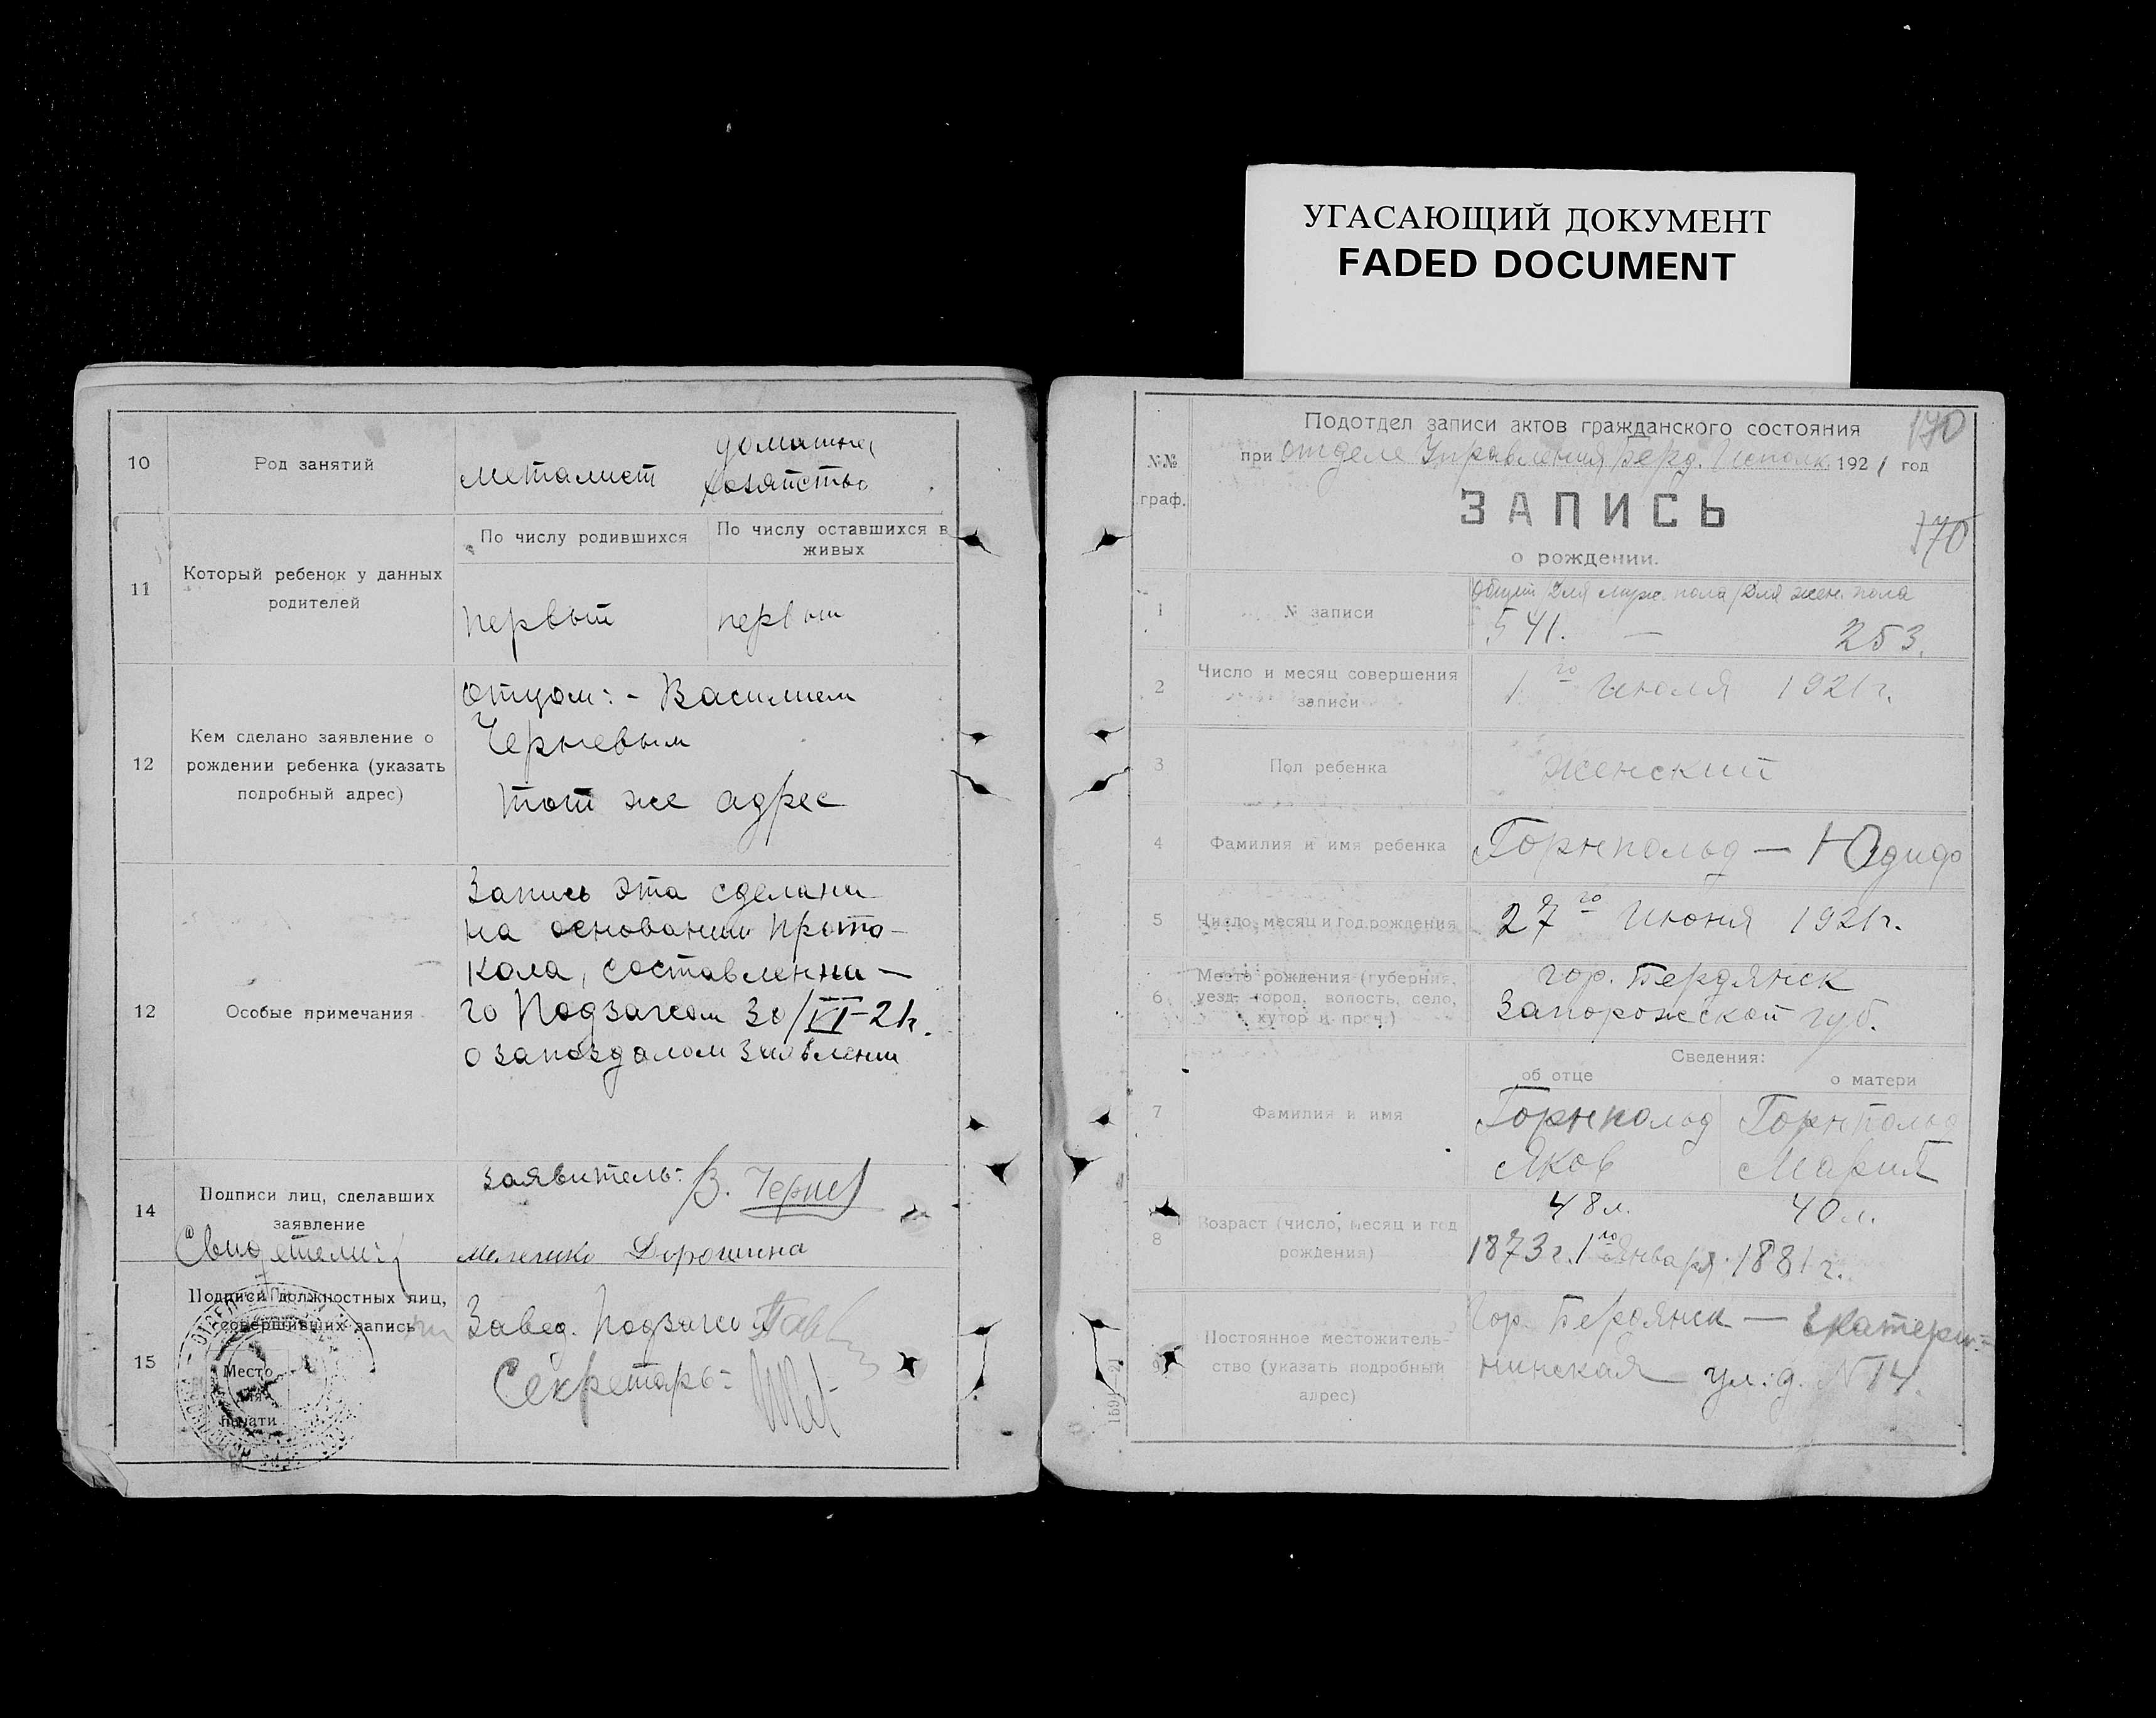 УГАСАЮЩИЙ ДОКУМЕНТ
FADED DOCUMENT
10
Род занятий
металист
домашнее
хозяйство
11
Который ребенок у данных
родителей
По числу родившихся
По числу оставшихся в
живых
первый
первый
12
Кем сделано заявление о
рождении ребенка (указать
подробный адрес)
отцом: - Василием
Черневым
тот же адрес
12
Особые примечания
Запись эта сделана
на основании прото-
кола, составленна-
го Подзагсом 30/VI-21г.
о запоздалом заявлении
14
Подписи лиц, сделавших
заявление
Свидетели:
заявитель: В. Чернев
Дорошина
15
Подписи должностных лиц,
совершивших запись
Место
для
печати
Завед. Подзагсом
Секретарь:
№№
граф.
Подотдел записи актов гражданского состояния
170
при отделе Управления Берд. Исполк. 1921 год
ЗАПИСЬ
170
о рождении.
1
№ записи
общий для муж. пола для жен. пола
541. — 253.
2
Число и месяц совершения
записи
1го Июля 1921г.
3
Пол ребенка
женский
4
Фамилия и имя ребенка
Горнпольд — Юдифь
5
Число, месяц и год рождения
27го Июня 1921г.
6
Место рождения (губерния,
уезд, город, волость, село,
хутор и проч.)
гор. Бердянск
Запорожской губ.
Сведения:
об отце
о матери
7
Фамилия и имя
Горнпольд
Яков
Горнпольд
Мария
8
Возраст (число, месяц и год
рождения)
48 л.
40 л.
1873 г. 1го Января
1881 г.
9
Постоянное местожитель-
ство (указать подробный
адрес)
Гор. Бердянск — Екатери-
нинская ул. д. № 14.